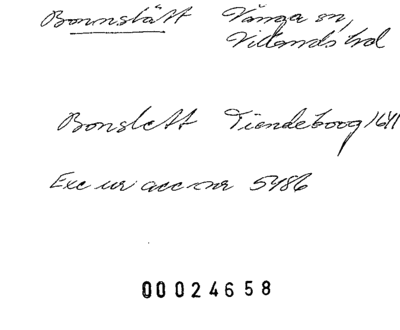 Bonnslätt Vånga sn,
Villands hd
Bonslett Tiendeboog 1641
Exc ur acc-nr 5486
00024658